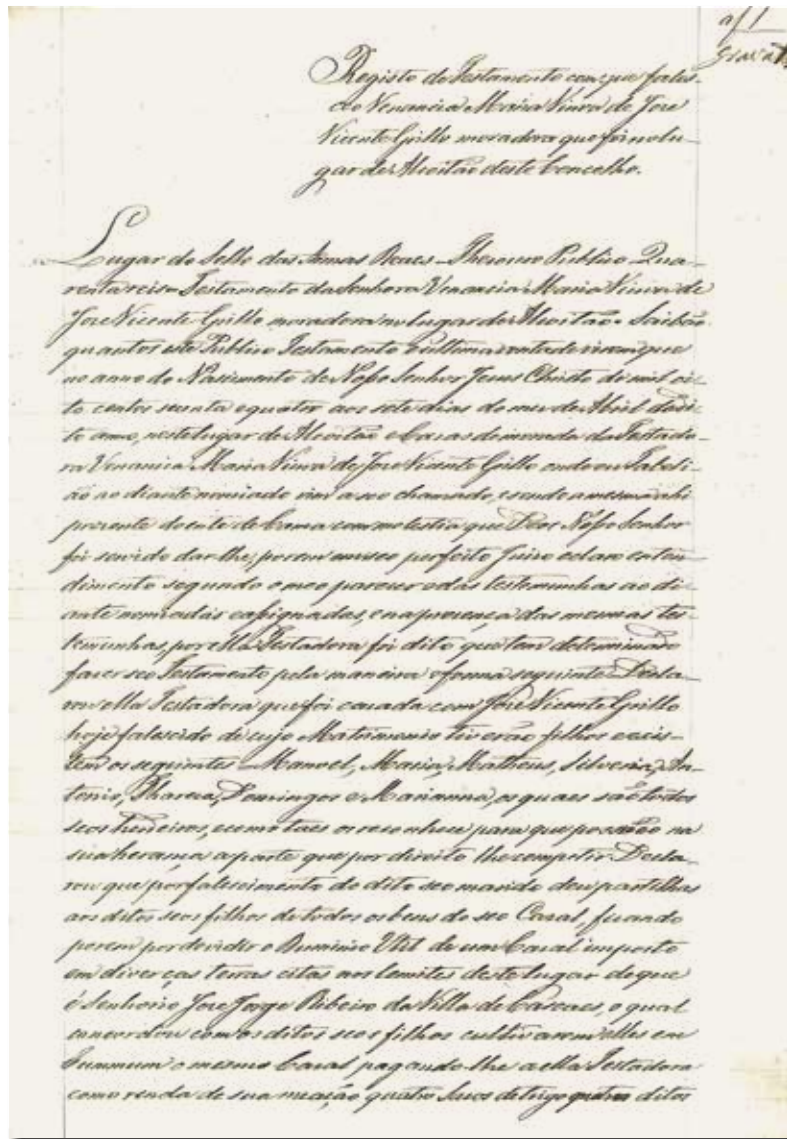 af 1
Registo do Testamento com que fales-
ceo Venancia Maria Viuva de Jose
Vicente Grillo moradora que foi no lu-
gar de Alcoitão deste Concelho.
Lugar do Sello das Armas Reaes - Thesouro Publico Qua-
renta reis - Testamento da Senhora Venancia Maria Viuva de
Jose Vicente Grillo moradora no lugar de Alcoitão. Saibão
quantos este Publico Testamento e ultima vontade virem que
no anno do Nascimento de Nosso Senhor Jesus Christo de mil oi-
to centos secenta e quatro aos sete dias do mez de Abril do di-
to anno, neste lugar de Alcoitão e Cazas de morada da Testado-
ra Venancia Maria Viuva de Jose Vicente Grillo onde eu Tabeli-
ão ao diante nomiado vim a seo chamado, e sendo a mesma ahi
prezente doente de Cama com molestia que Deos Nosso Senhor
foi servido dar-lhe, porem em seo perfeito Juizo e claro enten-
dimento segundo o meo parecer e das testemunhas ao di-
ante nomiadas e assignadas, e na prezença das mesmas tes-
temunhas, por ella Testadora foi dito que tem determinado
fazer seo Testamento pela maneira e forma seguinte. Decla-
rou ella Testadora que foi cazada com Jose Vicente Grillo
hoje falescido de cujo Matrimonio tiverão filhos e exis-
tem os seguintes - Manoel, Maria, Matheus, Silveria, An-
tonio, Thereza, Domingos e Marianna, os quaes são todos
seos herdeiros, e como taes os reconhece para que possão na
sua herança a parte que por direito lhe competir. Decla-
rou que por falescimento do dito seo marido deu partilhas
aos ditos seos filhos de todos os bens do seo Cazal, ficando
porem por devidir o Dominio Util de um Cazal imposto
em diverças terras citas nos lemites deste lugar de que
é Senhorio Jose Jorge Ribeiro da Villa de Cascaes, o qual
concordou com os ditos seos filhos cultivarem elles em
Cummum o mesmo Cazal pagando-lhe a ella Testadora
como renda de sua meação quatro sacos de trigo ditos